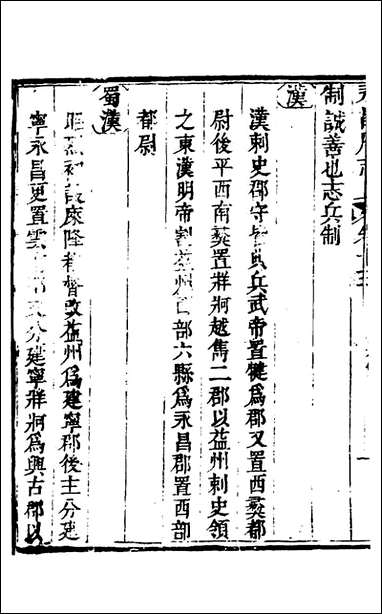 制誠善也志兵制
漢
漢刺史郡守皆典兵武帝置犍爲郡又置西僰都
尉後平西南夷置牂牁越雋二郡以益州刺史領
之東漢明帝割益州西部六縣爲永昌郡置西部
都尉
蜀漢
昭烈初設庲降都督改益州爲建寧郡後主分建
寧永昌更置雲南郡又分建寧牂牁爲興古郡以